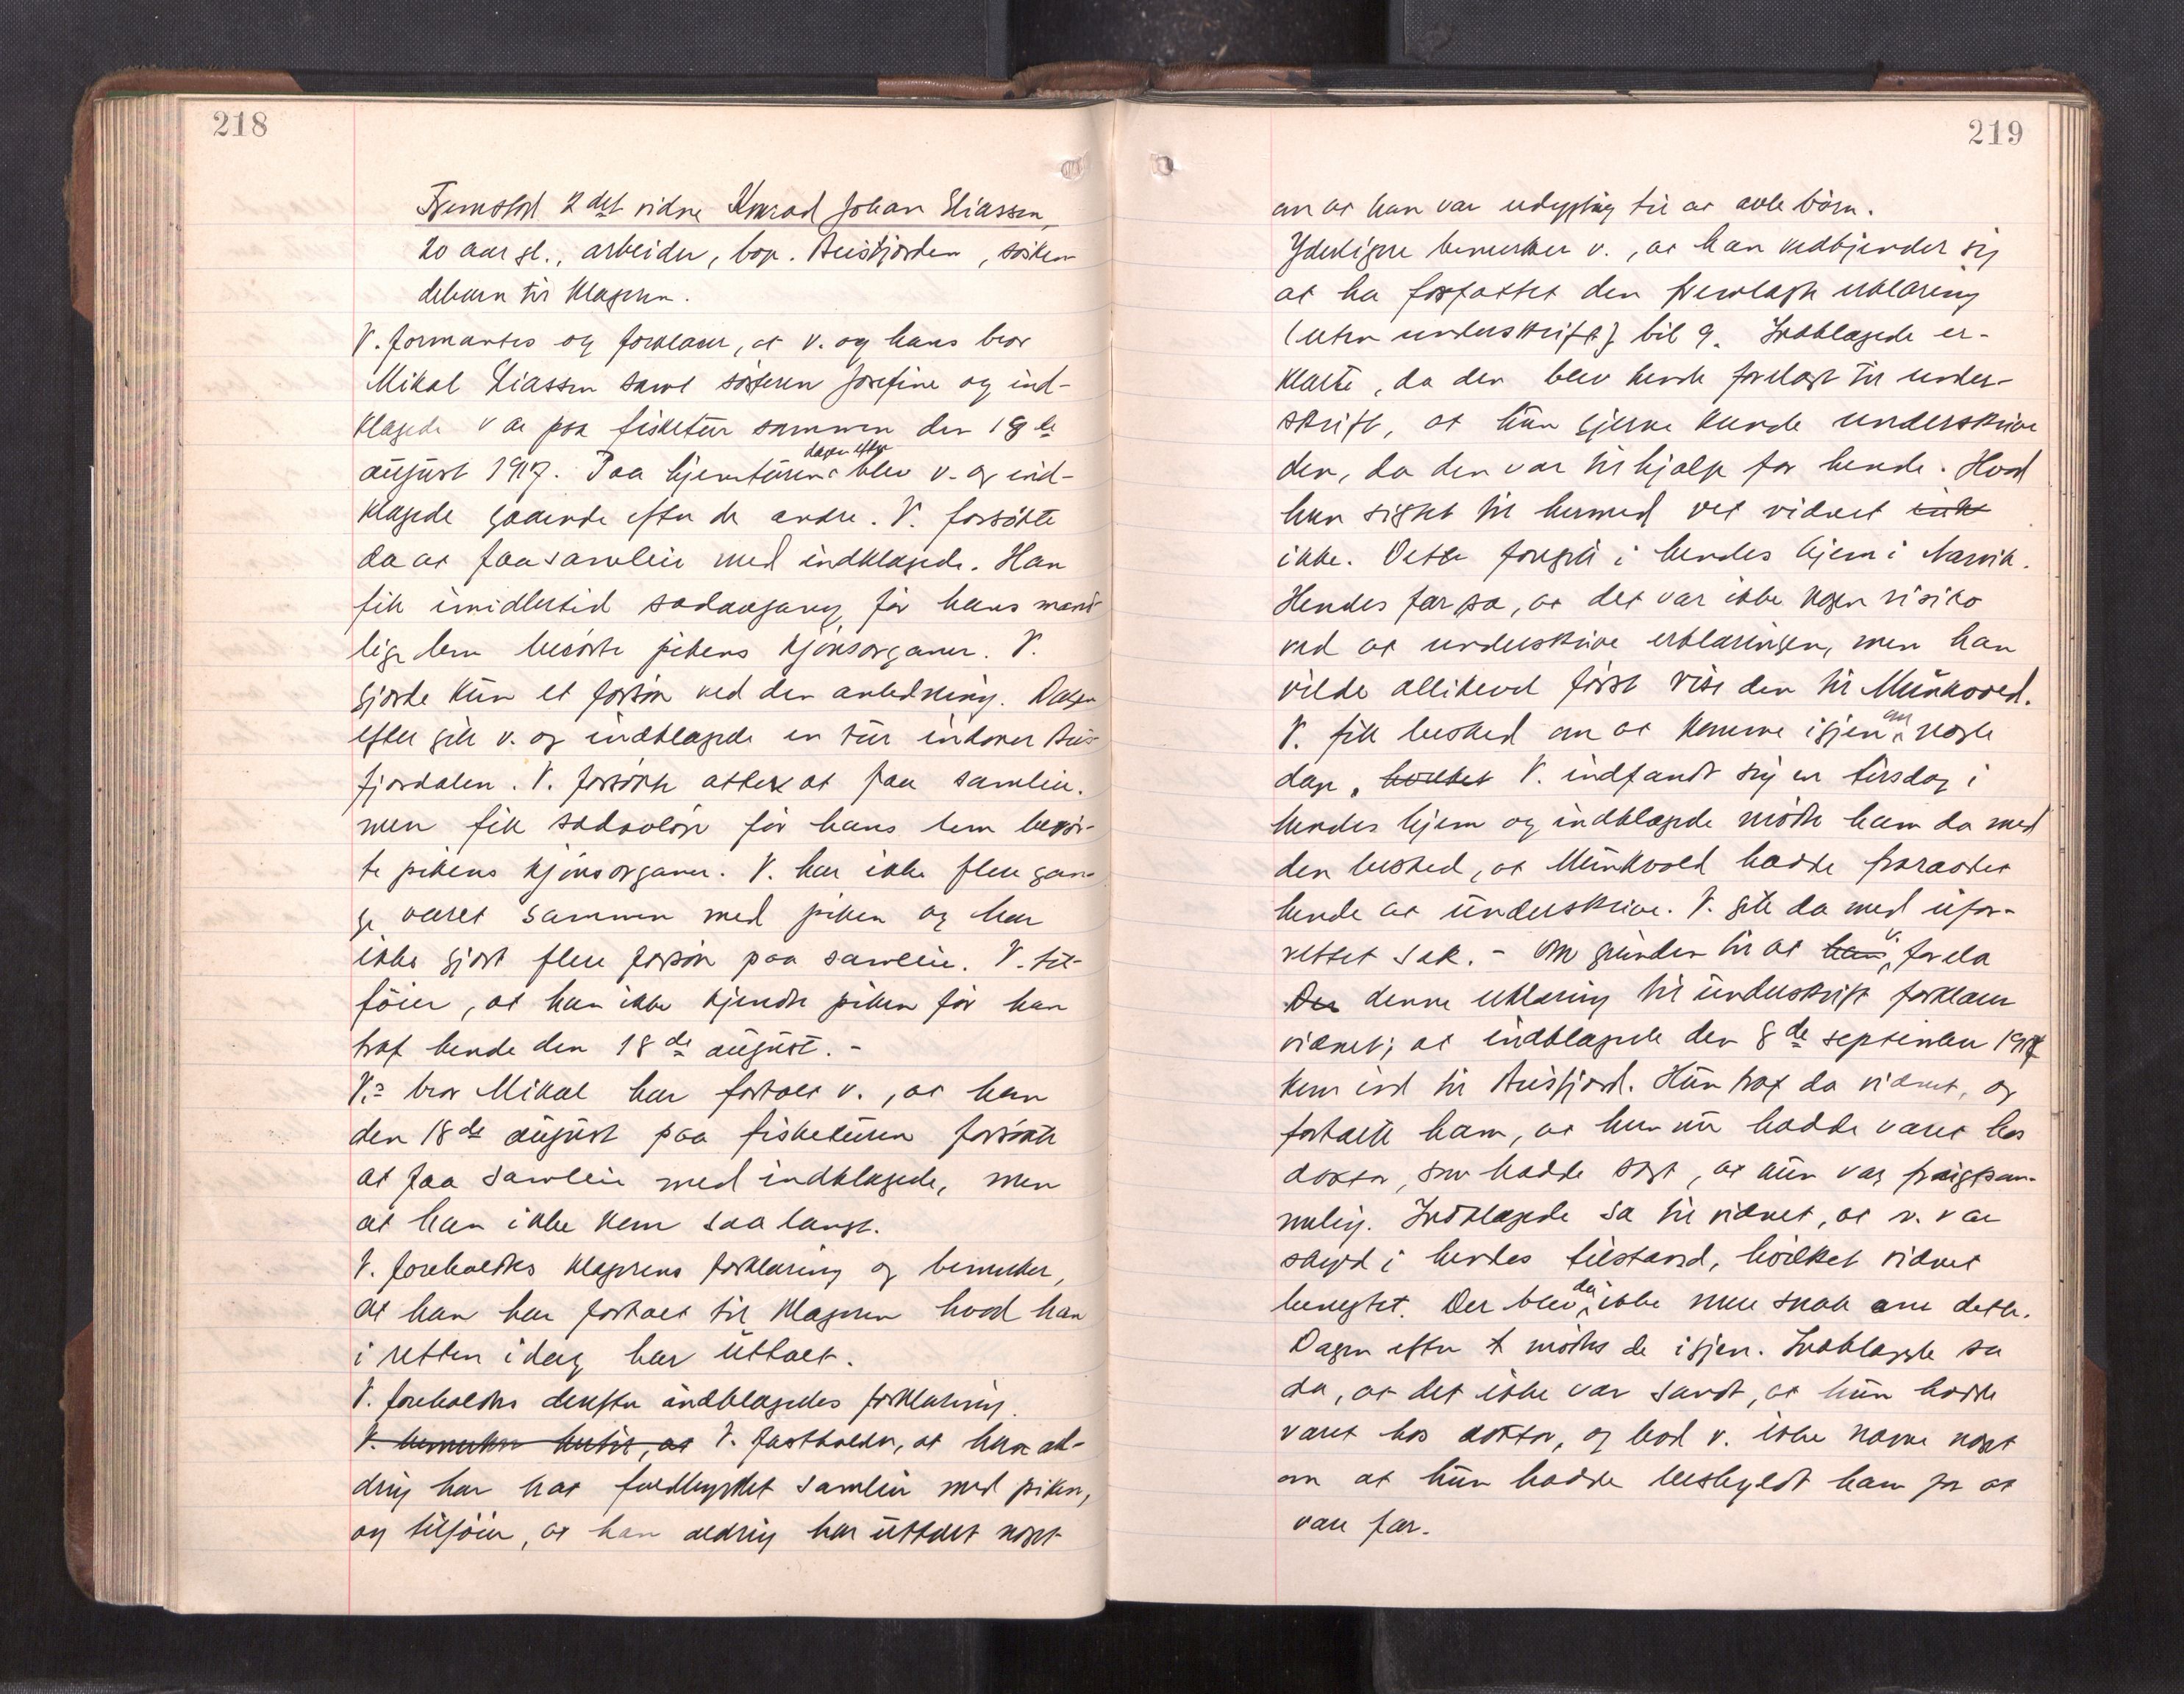 218
Fremstod 2det vidne Konrad Johan Eliassen,
20 aar gl., arbeider, bop. Beisfjorden, søsken-
debarn til klageren.
V. formantes og forklarer, at v. og hans bror
Mikal Eliassen samt søsteren Josefine og ind-
klagede var paa fisketur sammen den 18de
august 1917. Paa hjemturen dagen efter blev v. og ind-
klagede gaaende efter de andre. V. forsökte
da at faa samleie med indklagede. Han
fik imidlertid sædavgang før hans mand-
lige lem berørte pikens kjønsorganer. V.
gjorde kun et forsøk ved den anledning. Dagen
efter gik v. og indklagede en tur indover Beis-
fjorddalen. V. forsøkte atter at faa samleie.
men fik sædavløp før hans lem berør-
te pikens kjønsorganer. V. har ikke flere gan-
ge været sammen med piken og har
ikke gjort flere forsøk paa samleie. V. til-
føier, at han ikke kjendte piken før han
traf hende den 18de august. -
V.s bror Mikal har fortalt v., at han
den 18de august paa fisketuren forsøkte
at faa samleie med indklagede, men
at han ikke kom saa langt.
V. foreholdtes klagerens forklaring og bemerker,
at han har fortalt til klageren hvad han
i retten idag har uttalt.
V. foreholdtes derefter indklagedes forklaring.
V. bemerker hertil, at V. fastholder, at han al-
drig har hat fuldbyrdet samleie med piken,
og tilføier, at han aldrig har uttalt noget
219
om at han var udygtig til at avle børn.
Yderligere bemerker v., at han vedkjender sig
at ha forfattet den fremlagte erklæring
(uten underskrift) bil 9. Indklagede er-
klærte, da den blev hende forelagt til under-
skrift, at hun gjerne kunde underskrive
den, da den var til hjælp for hende. Hvad
hun sigtet til hermed vet vidnet ikke
ikke. Dette foregik i hendes hjem i Narvik.
Hendes far sa, at det var ikke nogen risiko
ved at underskrive erklæringen, men han
vilde allikevel først vise den til Munkvold.
V. fik besked om at komme igjen om nogle
dage, hvilket V. indfandt sig en tirsdag i
hendes hjem og indklagede møtte ham da med
den besked, at Munkvold hadde fraraadet
hende at underskrive. V. gik da med ufor-
rettet sak. - Om grunden til at han v. forela
Den denne erklæring til underskrift forklarer
vidnet, at indklagede den 8de september 1917
kom ind til Beisfjord. Hun traf da vidnet, og
fortalte ham, at hun nu hadde været hos
doktor, som hadde sagt, at hun var frugtsom-
melig. Indklagede sa til vidnet, at v. var
skyld i hendes tilstand, hvilket vidnet
benegtet. Der blev da ikke mere snak om dette.
Dagen efter møttes de igjen. Indklagede sa
da, at det ikke var sandt, at hun hadde
været hos doktor, og bad v. ikke nævne noget
om at hun hadde beskyldt ham for at
være far.